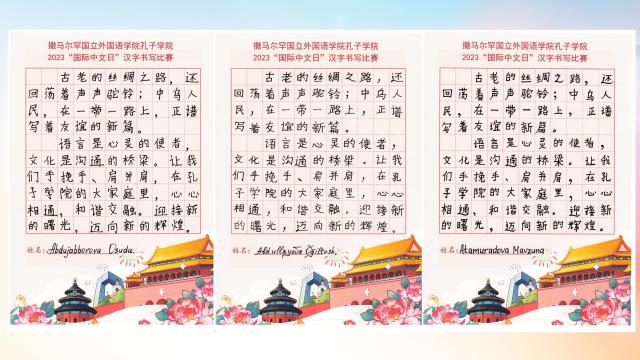 撒马尔罕国立外国语学院孔子学院
2023“国际中文日”汉字书写比赛
古老的丝绸之路，还
回荡着声声驼铃；中乌人
民，在一带一路上，正谱
写着友谊的新篇。
语言是心灵的使者，
文化是沟通的桥梁。让我
们手挽手、肩并肩，在孔
子学院的大家庭里，心心
相通，和谐交融。迎接新
的曙光，迈向新的辉煌。
姓名：Abdujabborova Osuda
撒马尔罕国立外国语学院孔子学院
2023“国际中文日”汉字书写比赛
古老的丝绸之路，还
回荡着声声驼铃；中乌人
民，在一带一路上，正谱
写着友谊的新篇。
语言是心灵的使者，
文化是沟通的桥梁。让我
们手挽手、肩并肩，在孔
子学院的大家庭里，心心
相通，和谐交融。迎接新
的曙光，迈向新的辉煌。
姓名：
撒马尔罕国立外国语学院孔子学院
2023“国际中文日”汉字书写比赛
古老的丝绸之路，还
回荡着声声驼铃；中乌人
民，在一带一路上，正谱
写着友谊的新篇。
语言是心灵的使者，
文化是沟通的桥梁。让我
们手挽手、肩并肩，在孔
子学院的大家庭里，心心
相通，和谐交融。迎接新
的曙光，迈向新的辉煌。
姓名：Atamuradova Mavzuna